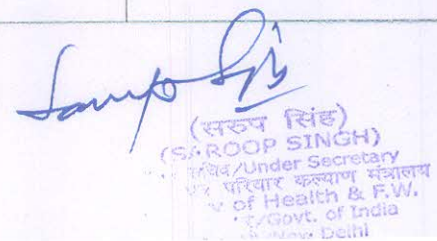 (सरुप सिंह)
(SAROOP SINGH)
सचिव/Under Secretary
परिवार कल्याण मंत्रालय
of Health & F.W.
/Govt. of India
New Delhi